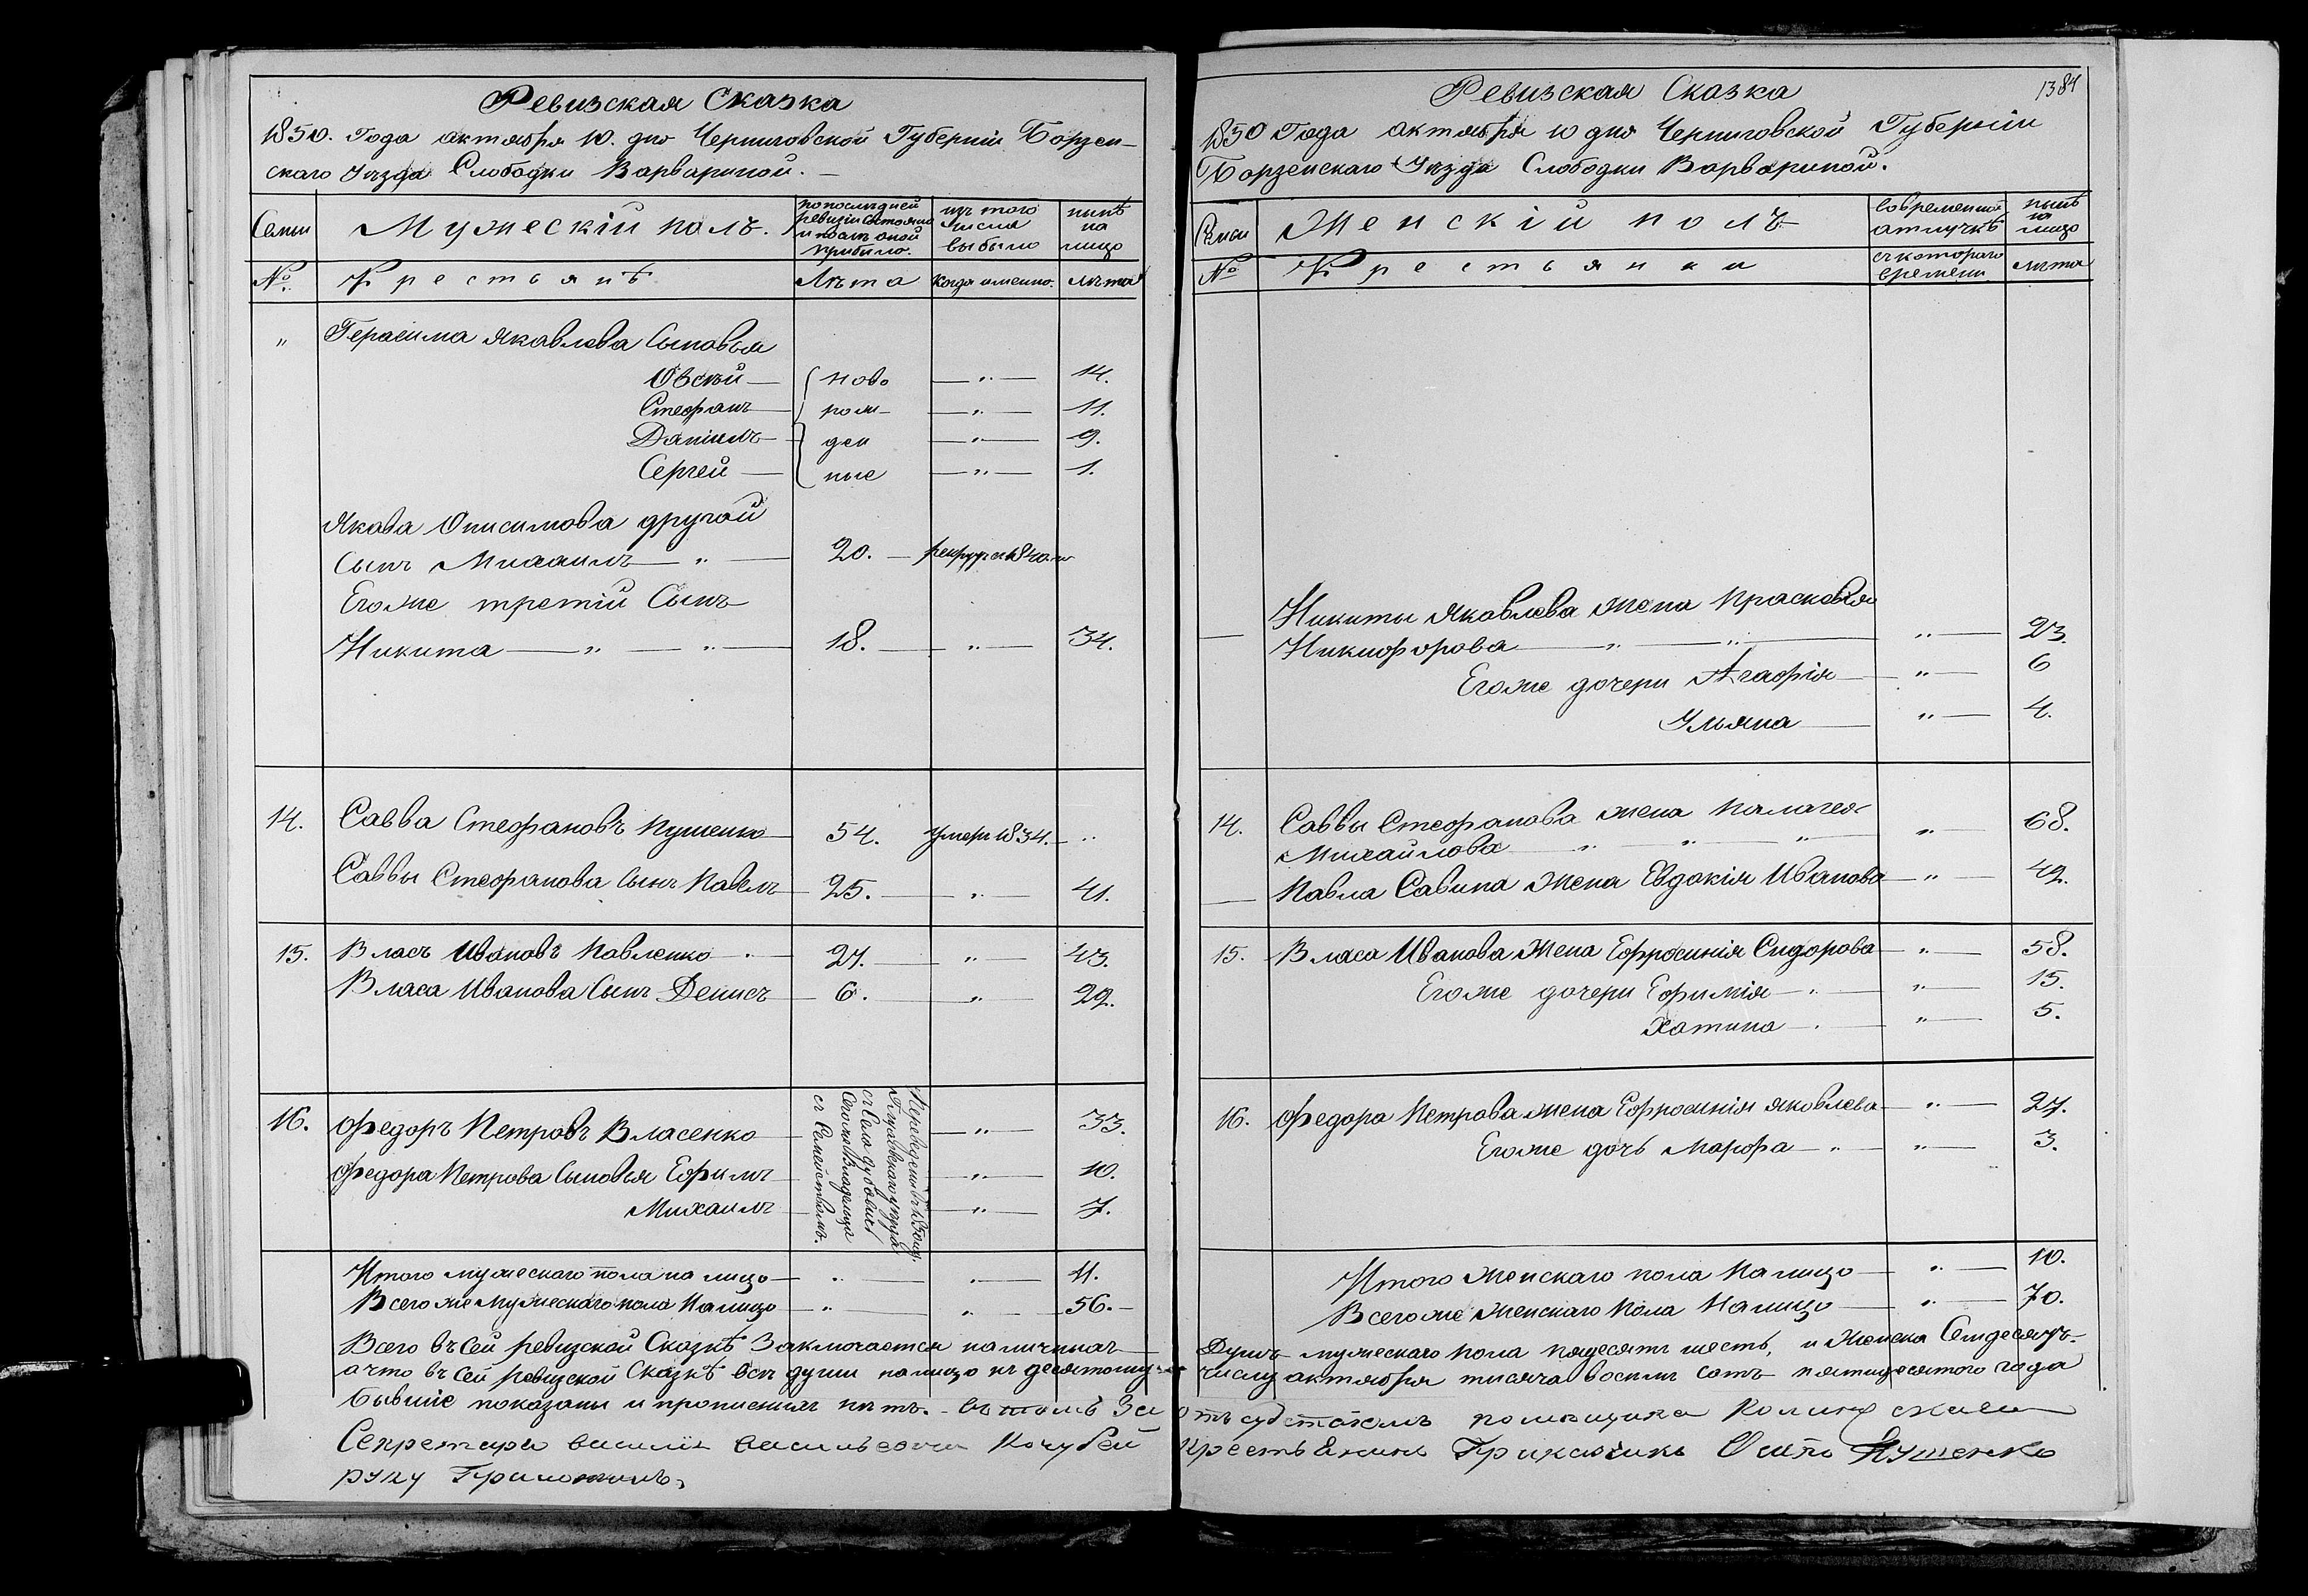 Ревизская Сказка
1850. Года октября 10. дня Черниговской Губерніи Борзен-
скаго Уѣзда Слободки Варвариной. —
Семьи
Мужескій полъ.
по последней ревизіи состояло и послѣ оной прибыло.
изъ того числа выбыло
нынѣ на лицо
№.
Крестьянѣ
Лѣта
Когда именно.
лѣта
" Герасима Яковлева Сыновья
Овсѣй — ново — " — 14.
Стефанъ — рож- — " — 11.
Даніилъ — ден — " — 9.
Сергей — ные — " — 1.
Якова Онисимова другой
Сынъ Михаилъ — " — 20. — рекрут съ 1840 го
Егоже третій Сынъ
Никита — " — " — 18. — " — 34.
14. Савва Стефановъ Пушенко — 54. умеръ 1834. — "
Саввы Стефанова Сынъ Павелъ — 25. — " — 41.
15. Власъ Ивановъ Павленко — 27. — " — 43.
Власа Иванова Сынъ Денисъ — 6. — " — 22.
16. Федоръ Петровъ Власенко — " — 33.
Федора Петрова Сыновья Ефимъ — " — 10.
Михаилъ — " — 7.
Глуховскаго уѣзда
съ Села
Сегожъ Владельца
съ Семействомъ.
Итого мужескаго пола на лицо — " — " — 11.
Всего же Мужескаго пола На лицо — " — " — 56. —
Ревизская Сказка
1384
1850 Года октября 10 дня Черниговской Губерніи
Борзенскаго Уѣзда Слободки Варвариной.
Семьи
Женскій полъ
Во временной отлучкѣ
нынѣ на лицо
№
Крестьянки
съ котораго времени
лѣта
— Никиты Яковлева жена Прасковія
Никифорова — " — " — " — 23.
Егоже дочери Агафія — " — 6
Ульяна — " — 4.
14. Саввы Стефанова жена Палагея
Михайлова — " " " — " — 68.
— Павла Савина жена Евдокія Иванова — " — 42.
15. Власа Иванова Жена Ефросинія Сидорова — " — 58.
Егоже дочери Ефимія — " — " — 15.
Хотина — " — 5.
16. Федора Петрова жена Ефросинія Яковлева — " — 27.
Егоже дочь Марфа — " — " — 3.
Итого Женскаго пола На лицо — " — 10.
Всего же Женскаго Пола На лицо — " — 70.
Всего въ Сей ревизской Сказкѣ Заключается наличныхъ Душъ мужескаго пола пядесятъ шесть, и Женска Семдесятъ-
а что въ Сей ревизской Сказкѣ всѣ души на лицо къ десятому числу октября тысяча восемь сотъ пятидесятого года
бывшіе показаны и прописныхъ нѣтъ. — въ томъ За помещика
Секретаря василія васильевича Кочубей Крестьянинъ Прикащикъ Пушенко
руку Приложилъ,